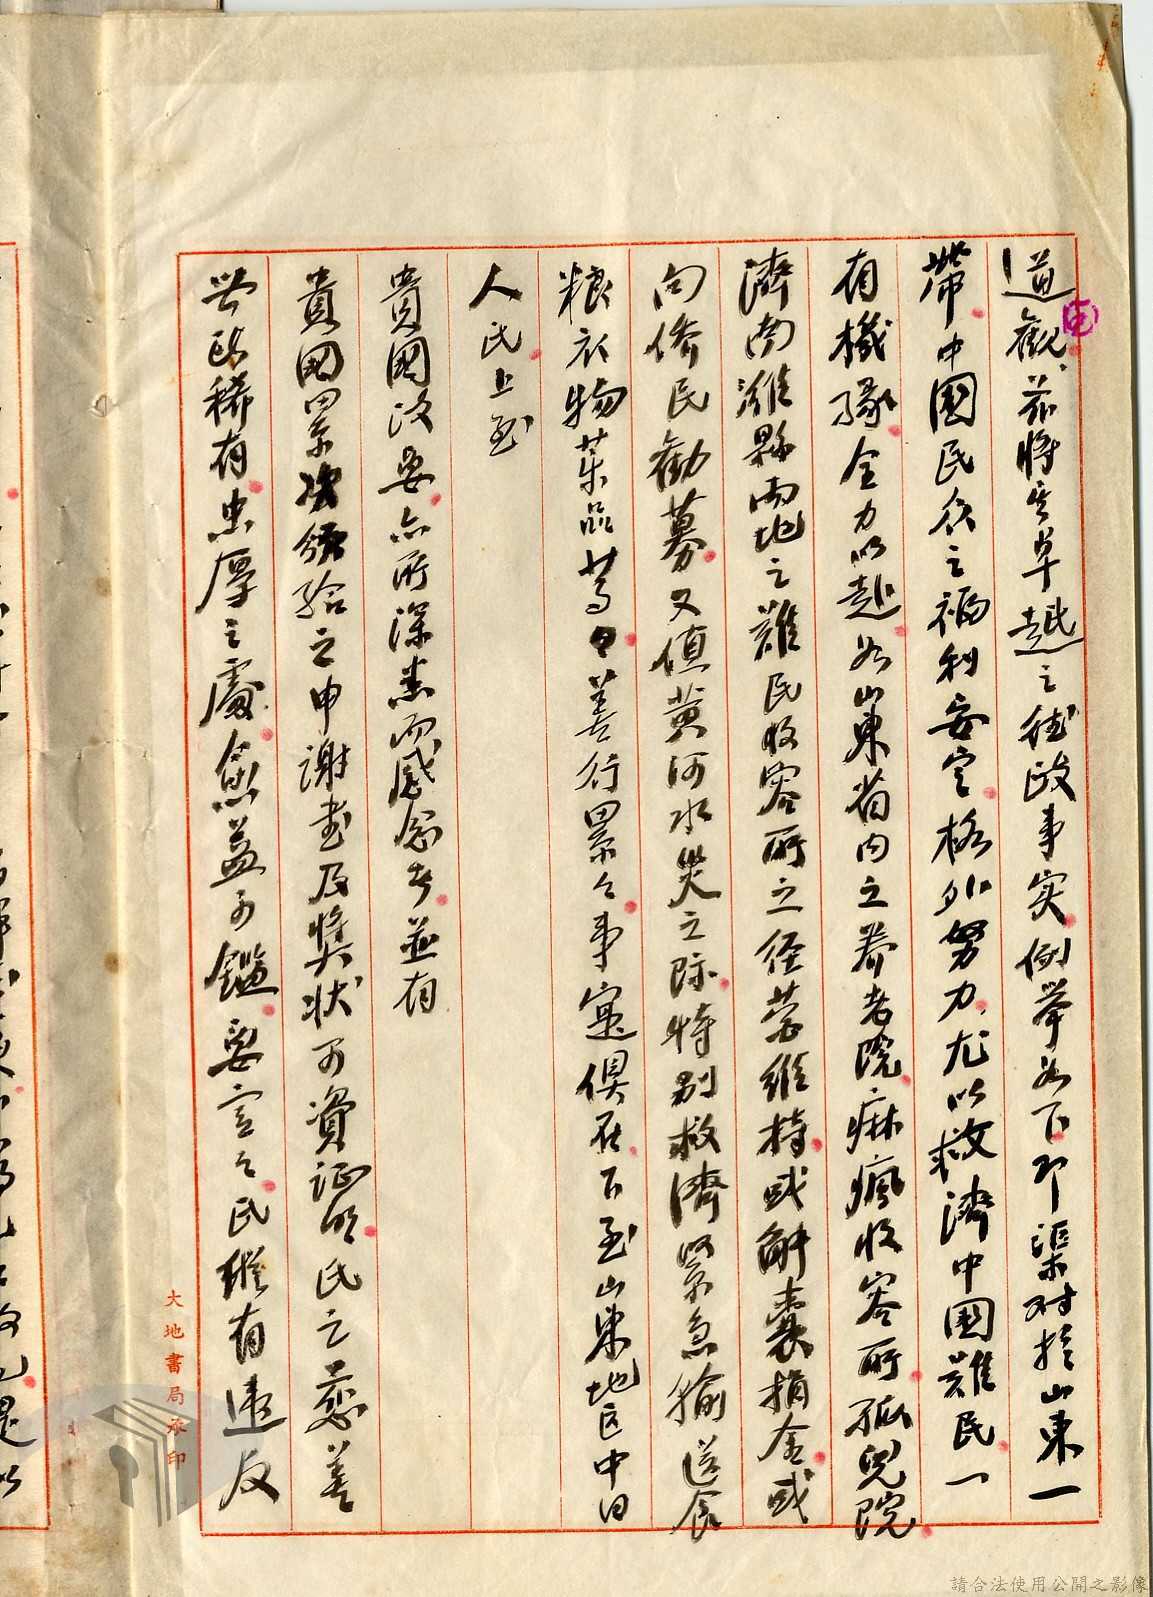 道觀茲將其卓越之德政事实例舉如下即渠对於山東一
帶中國民众之福利安定格外努力尤以救濟中国難民一
有機緣全力以赴如山東省內之养老院麻瘋收容所孤兒院
濟南濰縣兩地之難民收容所之经营維持或解囊捐金或
向僑民勸募又值黃河水災之际特別救濟緊急輸送食
粮衣物薬品等々善行累々事寔俱在乃至山东地区中日
人民上至
貴國政要亦所深悉而感念者並有
貴國累次頒給之申謝書及獎状可資证明氏之慈善
為政稀有忠厚之處愈益可鑑要言之氏縱有違反
大地書局承印
請合法使用公開之影像